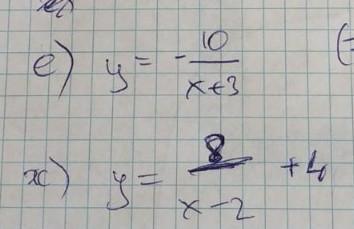 е) y = - 10/(x+3)
ж) y = 8/(x-2) + 4